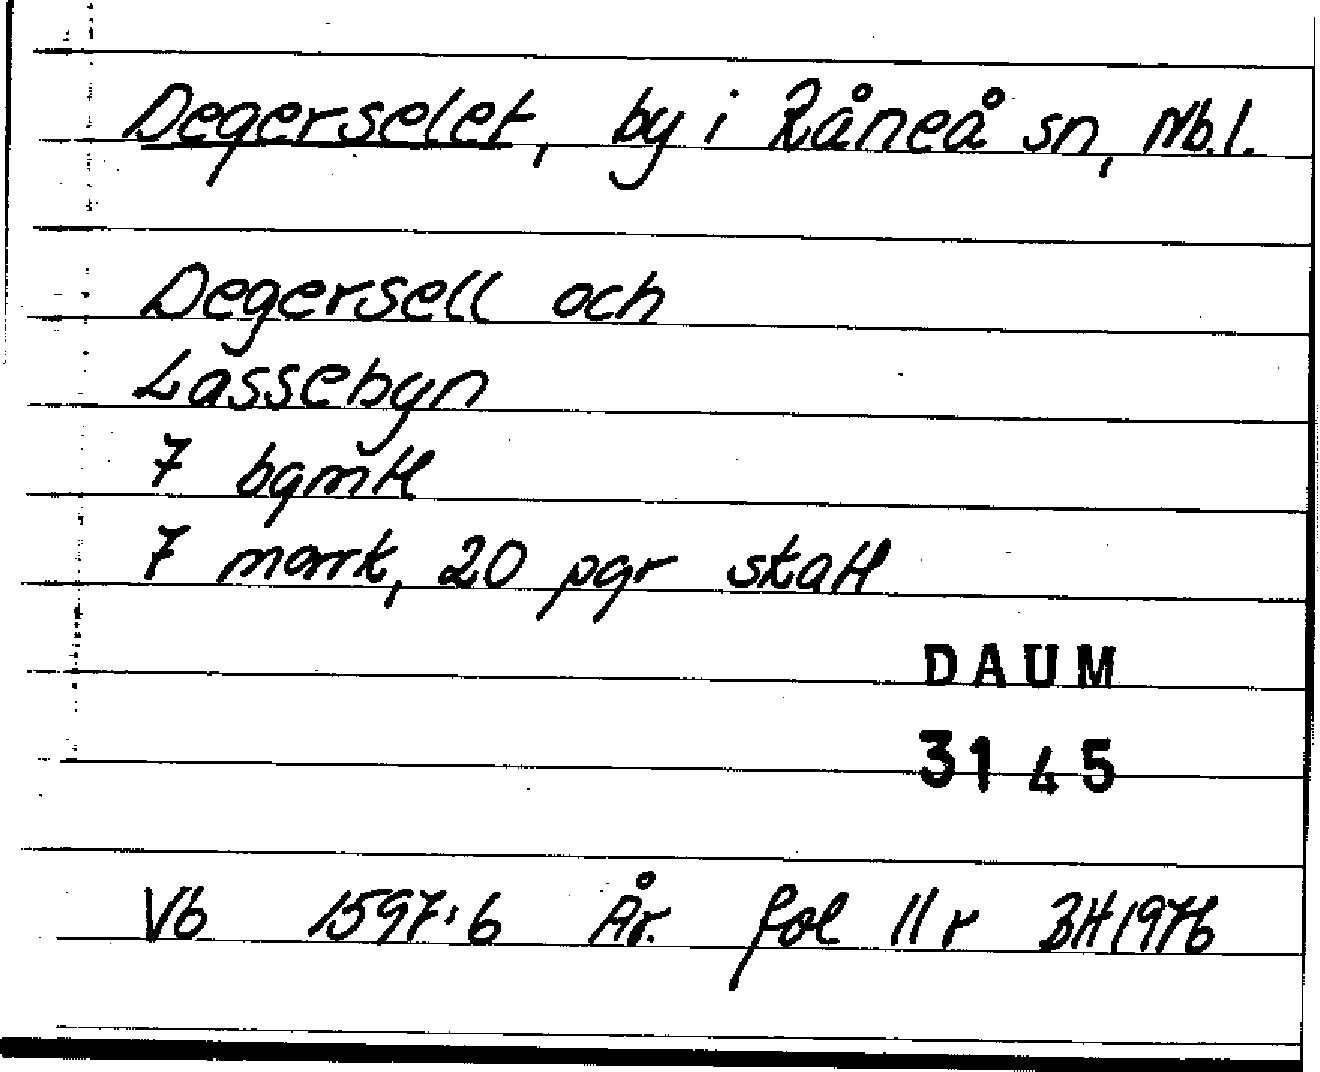 Degerselet, by i Råneå sn, Nb.l.
Degersell och
Lassebyn
7 bgmtl
7 mark, 20 pgr skatt
DAUM
3145
Vb 1597:6 År. fol 11 r BH 1976